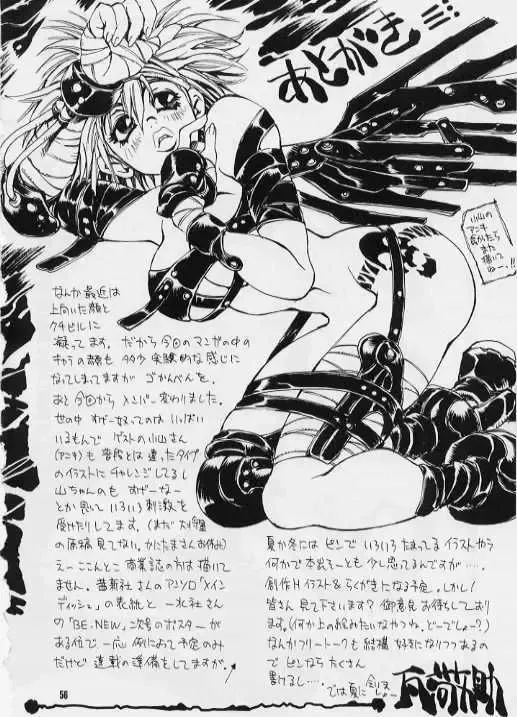 あとがき
なんか最近は
上向いた顔と
クチビルに
凝ってます。だから今回のマンガの中の
キャラの顔も多少実験的な感じに
なってしまってますがごかんべんを。
あと今回からメンバー変わりました。
世の中すげー奴ってのはいっぱい
いるもんでゲストの小山さん
(アニキ)も普段とは違ったタイプ
のイラストにチャレンジしてるし
山ちゃんのもすげーなー
とか思っていろいろ刺激を
受けたりしてます。(まだ
の原稿見てない。かにたまさんお休み)
えーここんとこ商業誌の方は描いて
ません。
ディッシュ」の表紙と一水社さんの
「BE-NEW」二次号のポスターが
ある位で一応例によって予定のみ
だけど連載の準備をしてますが。
小山の
アニキ
良かったら
また
描いて
ねー!!
夏か冬にはピンでいろいろたまってるイラストやら
何かで本出そーとも少し思ってるんですが……。
創作Hイラスト&らくがきになる予定。しかし!
皆さん見て下さいます?御意見お待ちしており
ます。(何か上のお悩みたいなやつね。どーでしょー?)
なんかフリートークも結構好きになりつつあるの
でピンならたくさん
書けるし……。
では夏に会いましょー
56